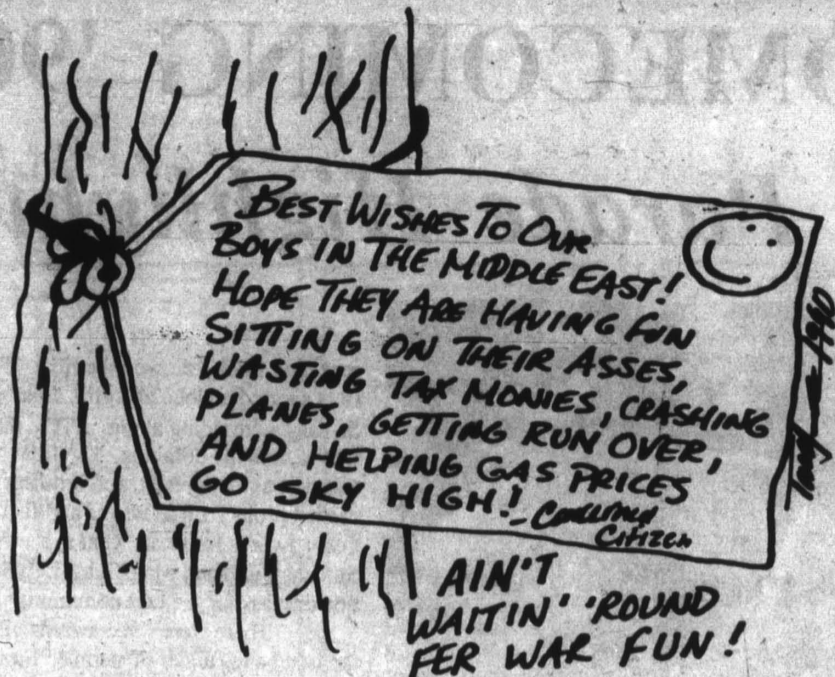 BEST WISHES TO OUR
BOYS IN THE MIDDLE EAST!
HOPE THEY ARE HAVING FUN
SITTING ON THEIR ASSES,
WASTING TAX MONIES, CRASHING
PLANES, GETTING RUN OVER,
AND HELPING GAS PRICES
GO SKY HIGH!
CITIZEN
AIN'T
WAITIN' 'ROUND
FER WAR FUN!